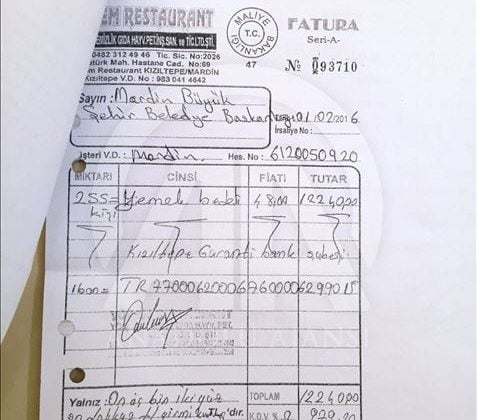 EM RESTAURANT
EMİZLİK GIDA HAYV.PET.İNŞ.SAN. ve TİC.LTD.ŞTİ.
0482 312 49 46 Tic. Sic. No:2026
atürk Mah. Hastane Cad. No:69
m Restaurant KIZILTEPE/MARDİN
Kızıltepe V.D. No : 983 041 4642
MALİYE
T.C.
BAKANLIĞI
47
FATURA
Seri-A-
No 093710
Sayın: Mardin Büyük
Şehir Beledye Başkan
01/02/2016
İrsaliye No:
üşteri V.D.: Mardin. Hes. No: 6120050920
MİKTARI CİNSİ FİATI TUTAR
255= Yemek bedeli 48,00 1224000
kişi
Kızıltepe Garanti bank şubesi
iban= TR770006200067600006299015
AJANSI
Yalnız: On üç bin iki yüz TOPLAM 1224000
K.D.V %